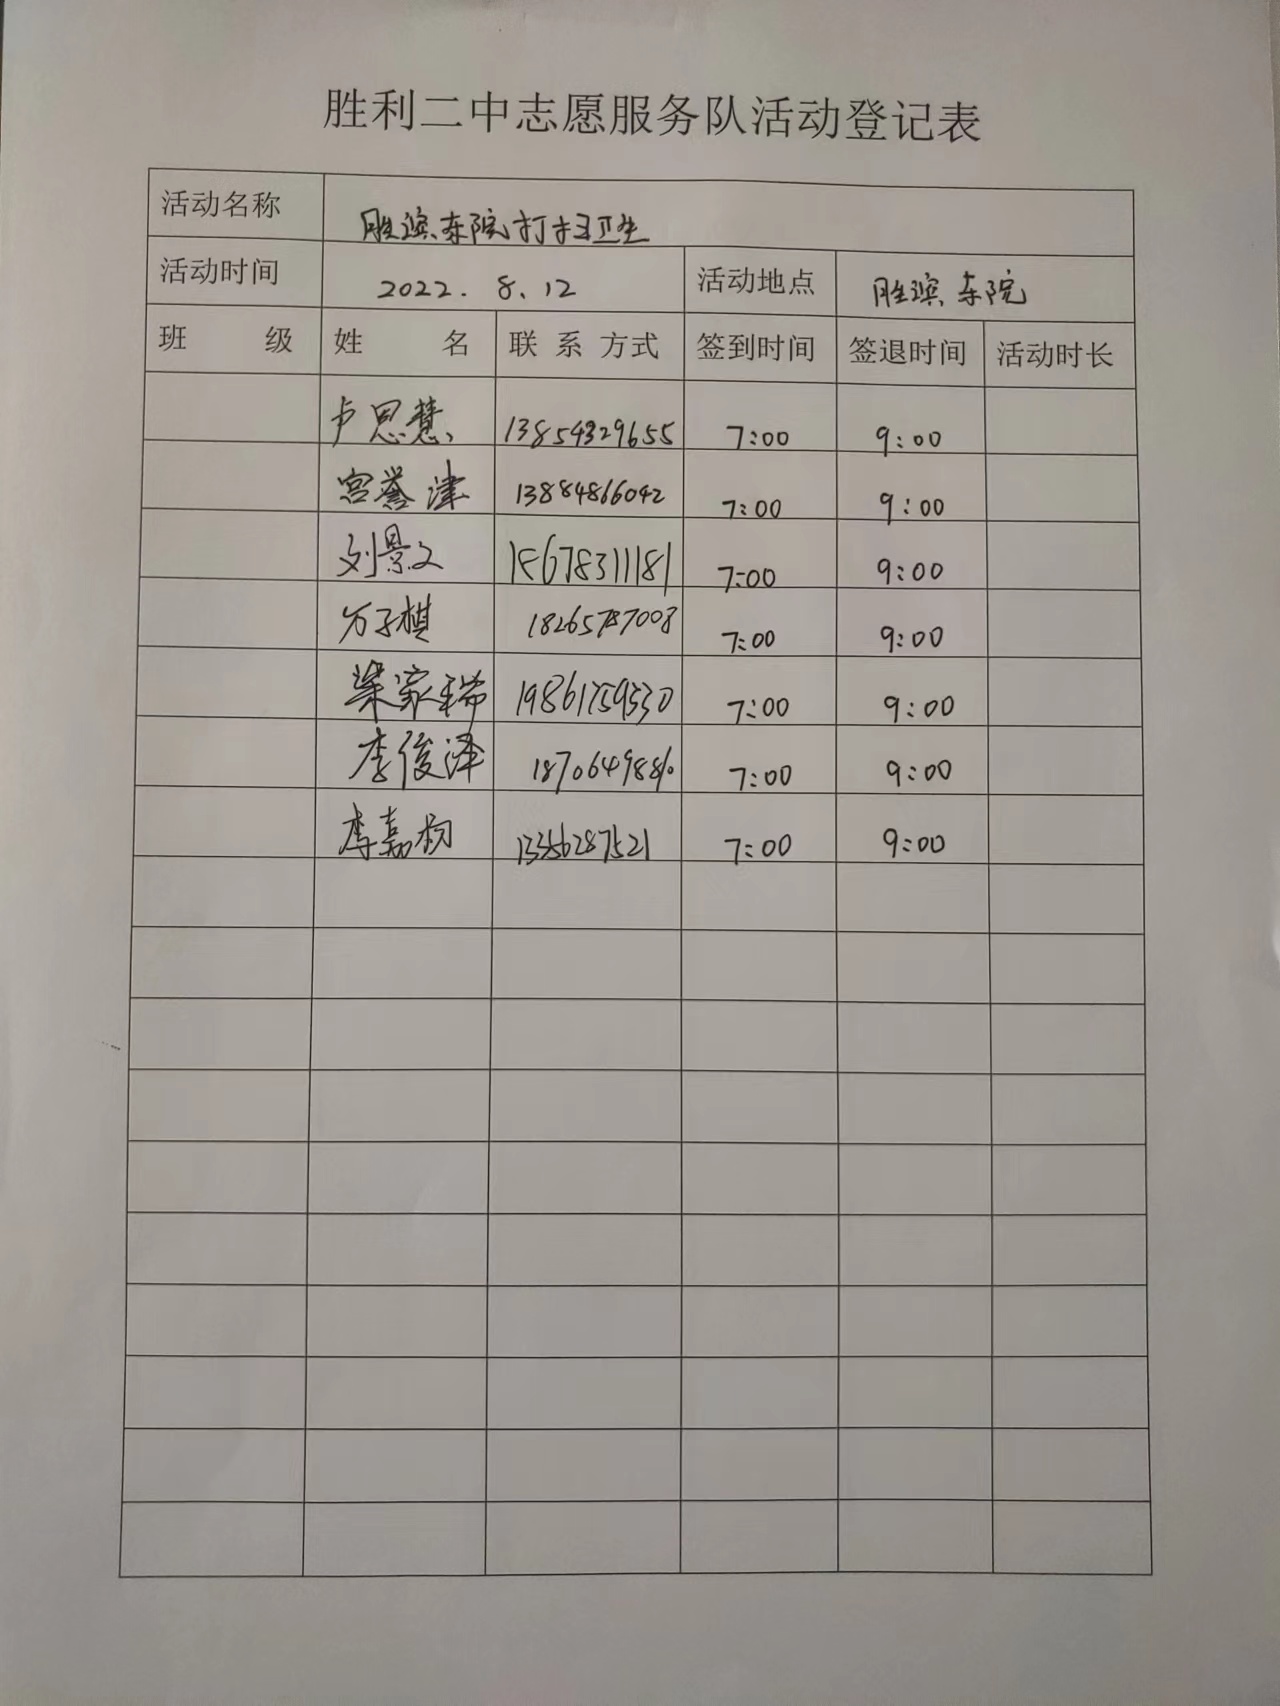 胜利二中志愿服务队活动登记表
活动名称 胜滨东院打扫卫生
活动时间 2022.8.12 活动地点 胜滨东院
班 级 姓 名 联系方式 签到时间 签退时间 活动时长
卢思慧 13854329655 7:00 9:00
宫誉津 13884866042 7:00 9:00
刘景文 15678311181 7:00 9:00
万子棋 18265787008 7:00 9:00
梁家瑞 19861759530 7:00 9:00
李俊泽 7:00 9:00
李嘉昀 13356287521 7:00 9:00